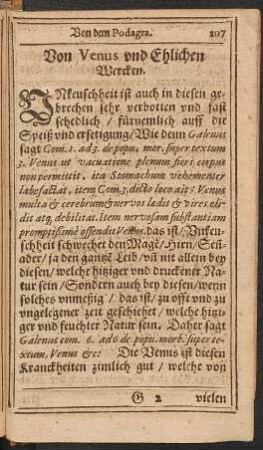 Von dem Podagra. 207
Von Venus vnd Ehlichen
Wercken.
VNkeuschheit ist auch in diesen ge-
brechen sehr verbotten vnd fast
schedlich / fürnemlich auff die
Speiß vnd ersetigung / Wie denn Galenus
sagt Com. 1. ad 3. de popu. mor. super textum
3. Venus ut vacuatione plenum fieri corpus
non permittit, ita Stomachum vehementer
labefactat, item Com. 3. dicto loco ait: Venus
multa & cerebrum & nervos lædit & vires eli-
dit atq; debilitat. Item nervosam substantiam
promptissimè offendit Venus. das ist / Vnkeu-
schheit schwechet den Magē / Hirn / Senn-
ader / ja den gantzē Leib / vñ nit allein bey
diesen / welche hitziger vnd druckener Na-
tur sein / Sondern auch bey diesen / wenn
solches vnmeßig / das ist / zu offt vnd zu
vngelegener zeit geschiehet / welche hitzi-
ger vnd feuchter Natur sein. Daher sagt
Galenus com. 6. ad 6 de popu. morb. super te-
xtum, Venus &c: Die Venus ist diesen
Kranckheiten zimlich gut / welche von
G 2 vielen